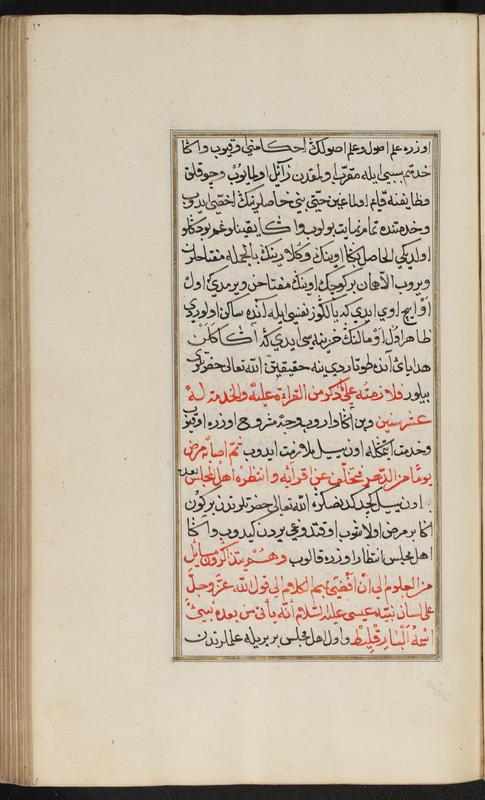 اوزره علم اصول و علم اصولك احكامنى وقيوب واكا
خدمتم سببى ايله مقرب اولمقدن زائل اولمايوب وجو قلق
وظايفنه قيام اولماغين حتى بنى خاصلرينك اخصى ايدوب
وخدمتده تمام نهايت بولوب واكا يقينلوغم بو حكلو
اولديكى الحاصل بكا اوينك وكلارينك بالجمله مفتاحلرن
ويروب الا همان بر كوچك اوينك مفتاحن ويرمدى اول
او ايچ اوى ايدى كه يالكوز نفسى ايله آنده ساكن اولوردى
ظاهر اول او مالنك خزينه سى ايدى كه اكا كلن
هداياى آنده طوتاردى ينه حقيقتن الله تعالى حضرتلرى
بيلور فلازمته على ذكر من القراءة عليه والخدمة له
عشر سنين وبن اكا واروب وجه مشروح اوزره اوقيوب
وخدمت ايتمكله اون ييل ملازمت ايدوب ثم اصابه مرض
يوما من الدهر فتخلف عن قرآيه وانتظره اهل المجلس بعده
اون ييل كجدكدنصكره الله تعالى حضرتلرندن بر كون
اكا بر مرض اولاشوب اوقتدوغى يردن كيدوب واكا
اهل مجلس انتظار اوزره قالوب وهم يتذاكرون مسائل
من العلوم الى ان افضى بهم الكلام الى قول الله عز وجل
على لسان نبيه عيسى عليه السلام انه يأتى من بعده نبى
اسمه البارقليط واول اهل مجلس بر بريله علملرندن